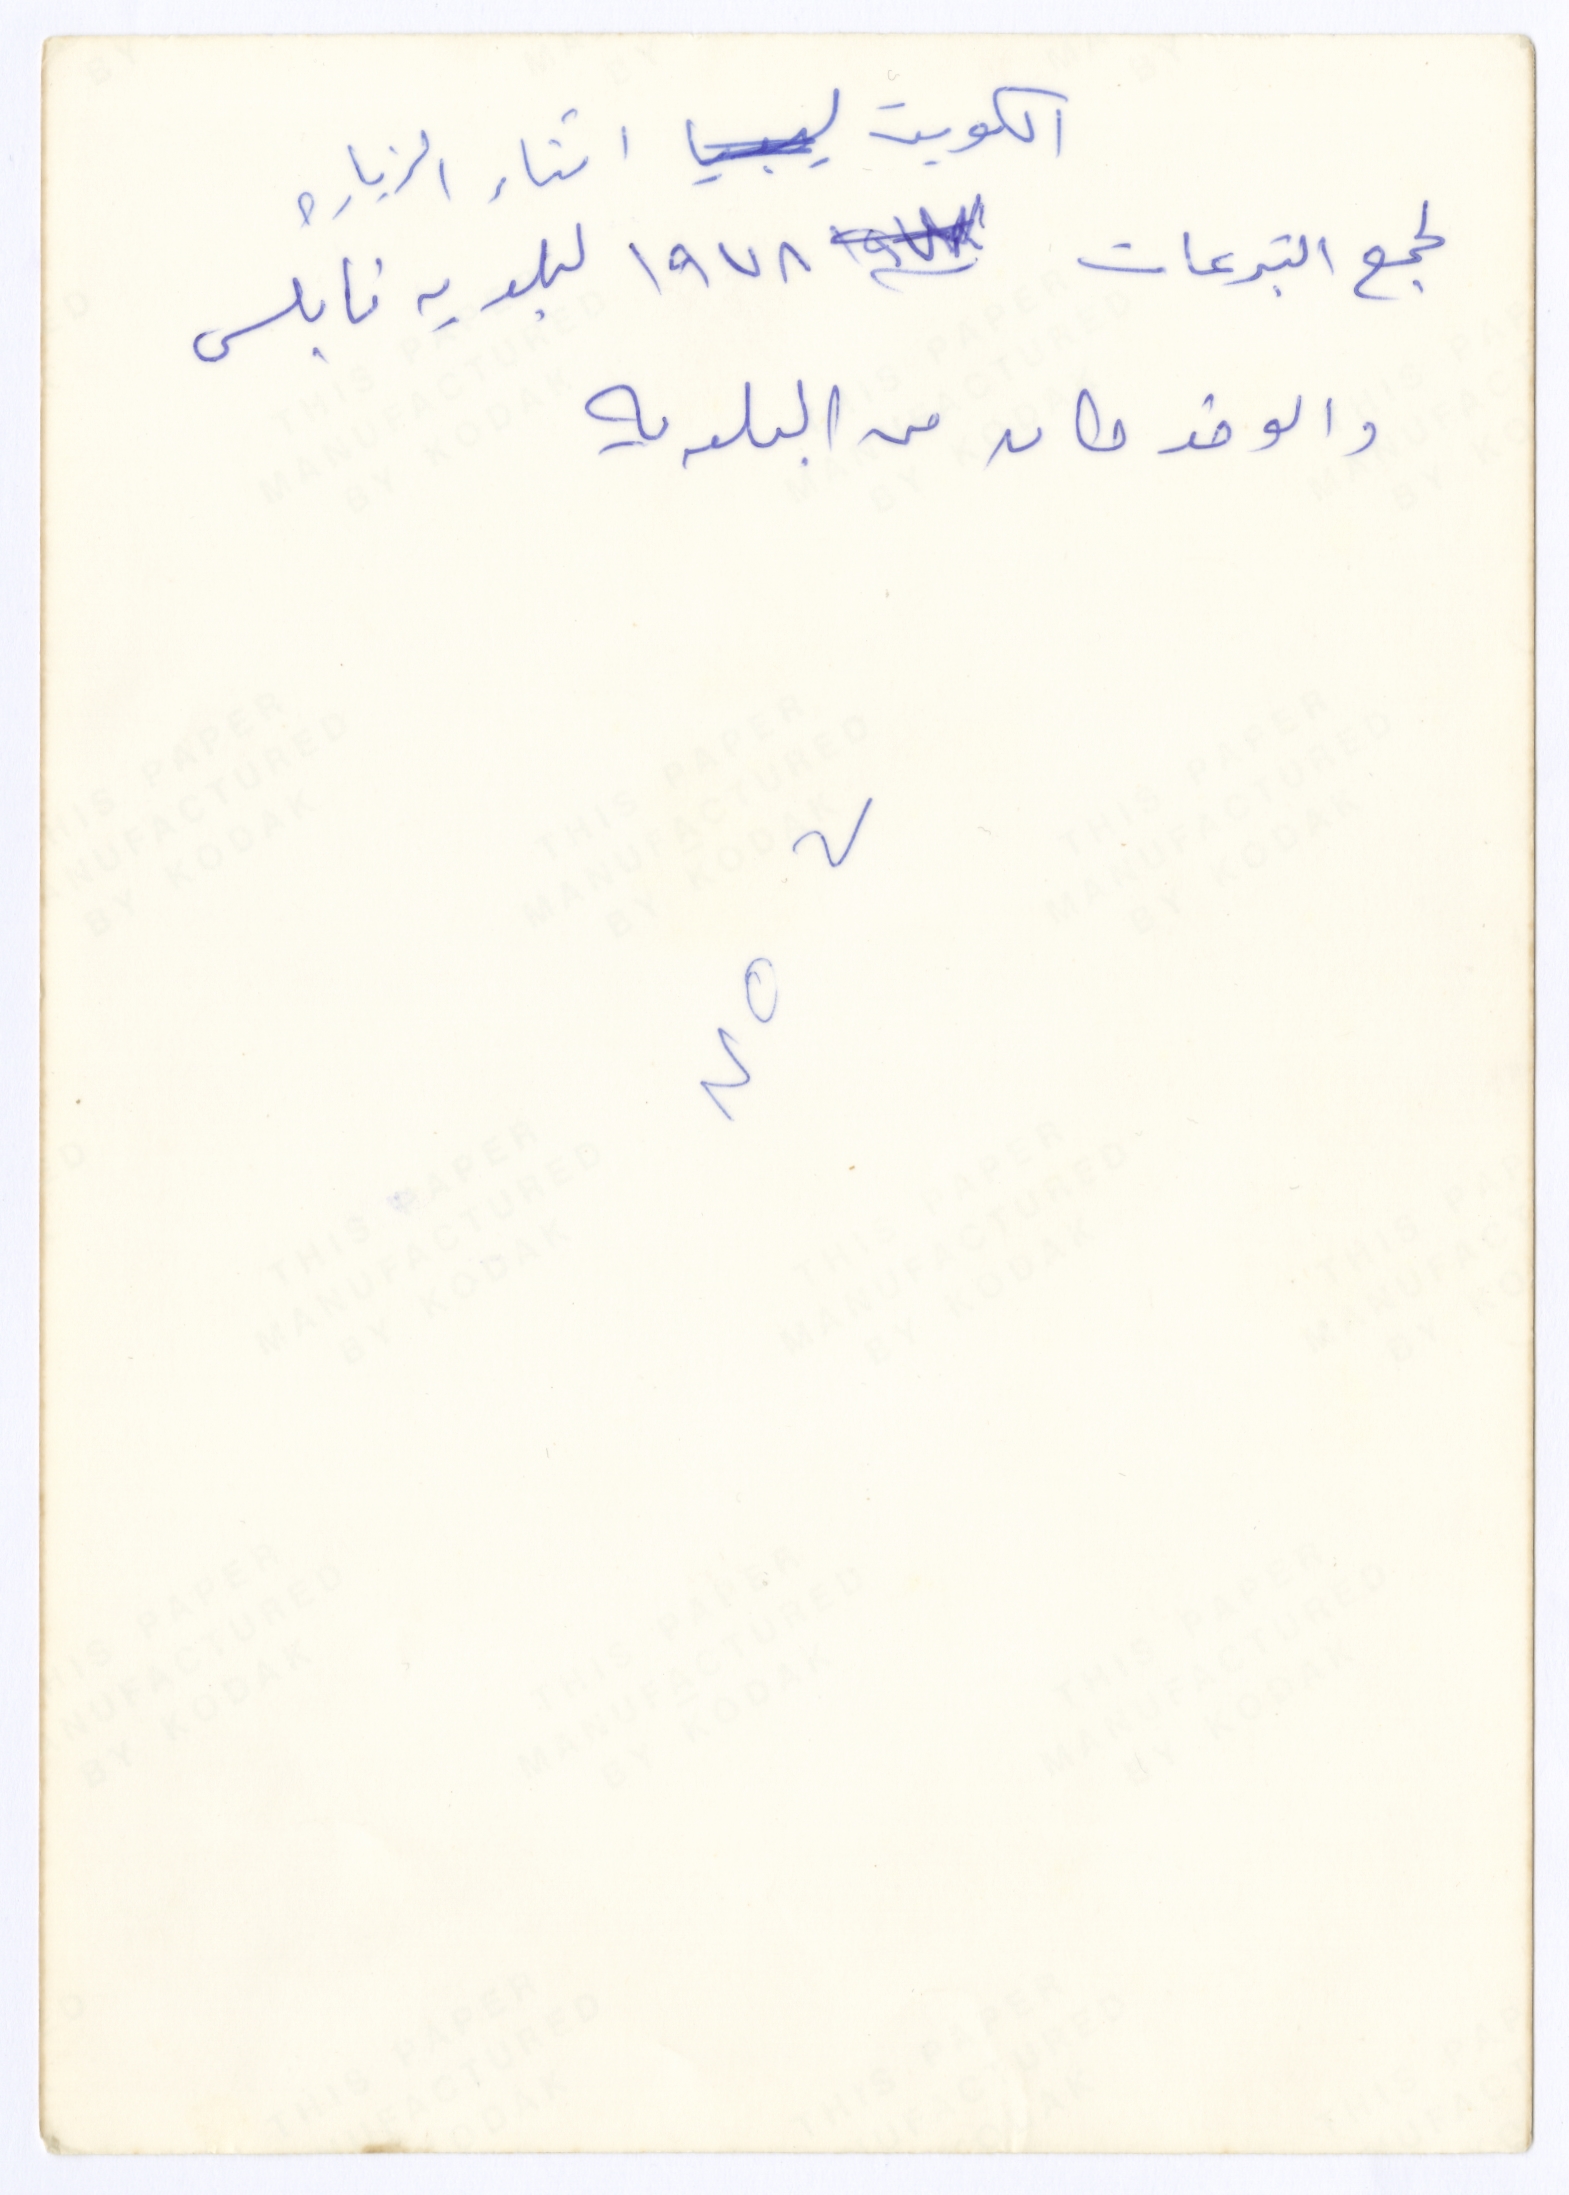 الكويت ليبيا اثناء الزياره
لجمع التبرعات ١٩٧٨ لبلديه نابلس
والوفد كان من البلديه
THIS PAPER
MANUFACTURED
BY KODAK